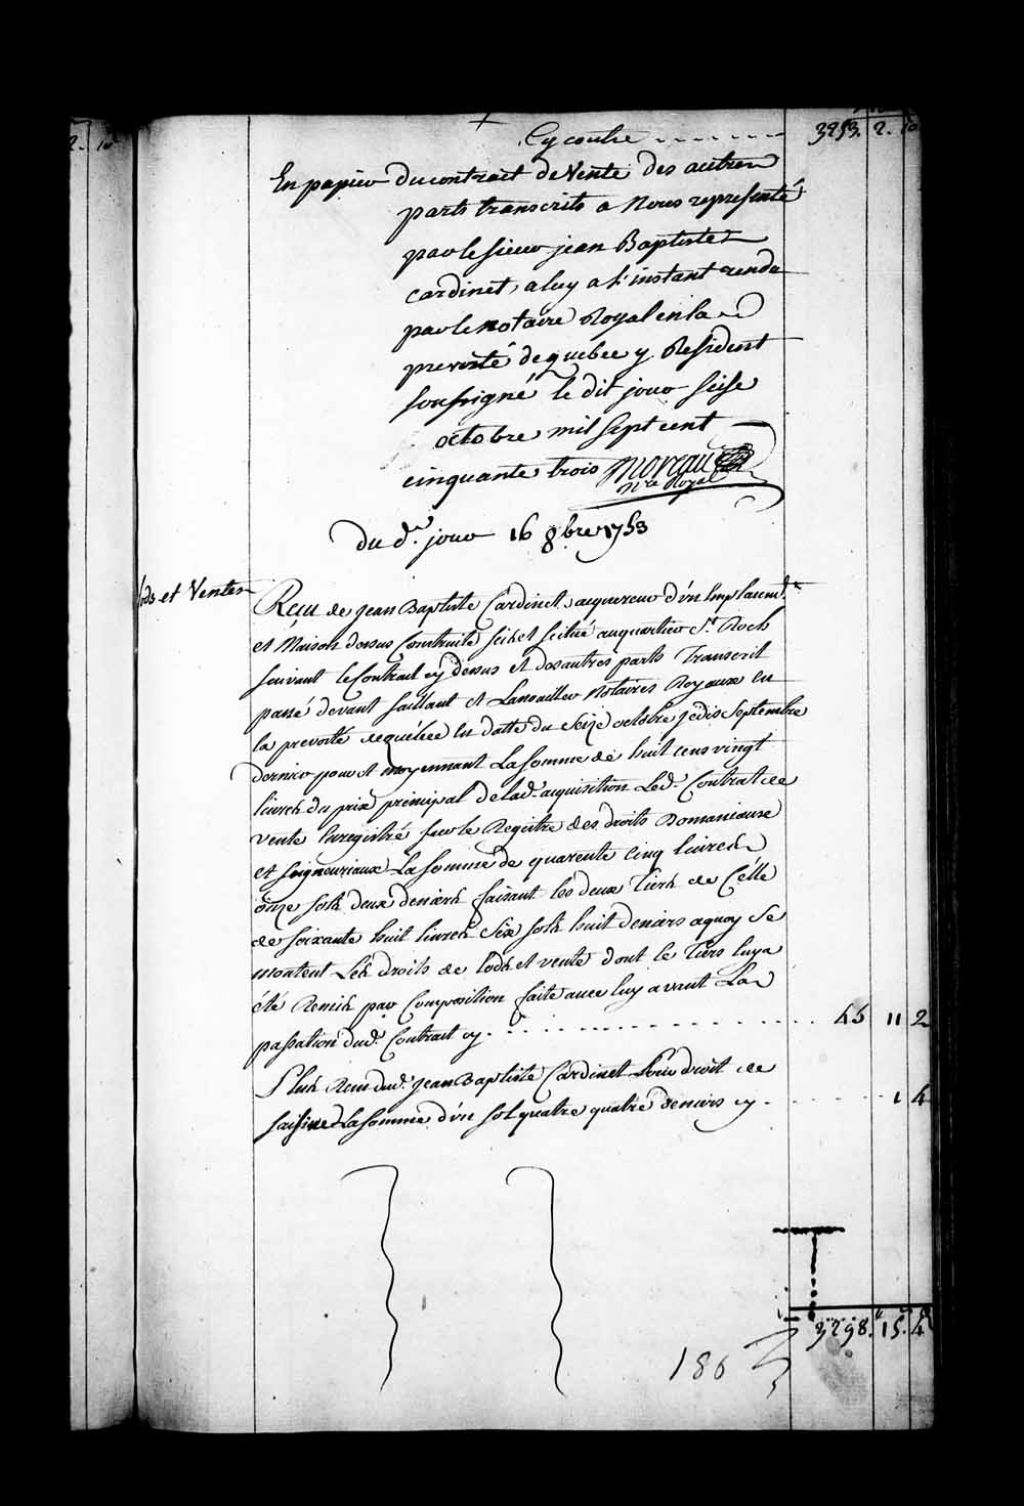 Cy contre - - - - - - 3253. 2. 10
En papier du contract de Vente des autres
parts transcrits a Nous representé
par le sieur jean Baptiste
cardinet, a luy a l'instant rendu
par le notaire Royal en la
prevosté de quebec y Resident
soussigné le dit jour seise
octobre mil sept cent
cinquante trois Moreau
Nre Royal
Du d. jour 16 8bre 1753
lods et Ventes
Reçu de jean Baptiste Cardinet, acquereur d'un Emplacemt.
et Maison dessus Construite sise et scitué au quartier St. Roch
suivant le Contrat cy dessus et des autres parts Transcrit
passé devant Saillant et Lanouiller Notaires Royaux en
la prevosté de quebec en datte du Seize Septembre
dernier pour et moyennant La somme de huit cens vingt
livres du prix principal de lad. acquisition Led. Contrat de
vente Enregistré sur le Registre des droits Domaniaux
et seigneuriaux La somme de quarente Cinq livres
onze sols deux deniers faisant les deux Tiers de Celle
de soixante huit livres six sols huit deniers a quoy se
montent Les droits de lods et vente dont le Tiers luy a
été Remis par Composition faite avec luy avant La
passation dud. Contrat cy - - - - - - 45 11 2
Plus Reçu dud. jean Baptiste Cardinet droit de
saisine La somme d'un sol quatre quatre deniers cy - - - - - - 1 4
3298. 15. 4
186